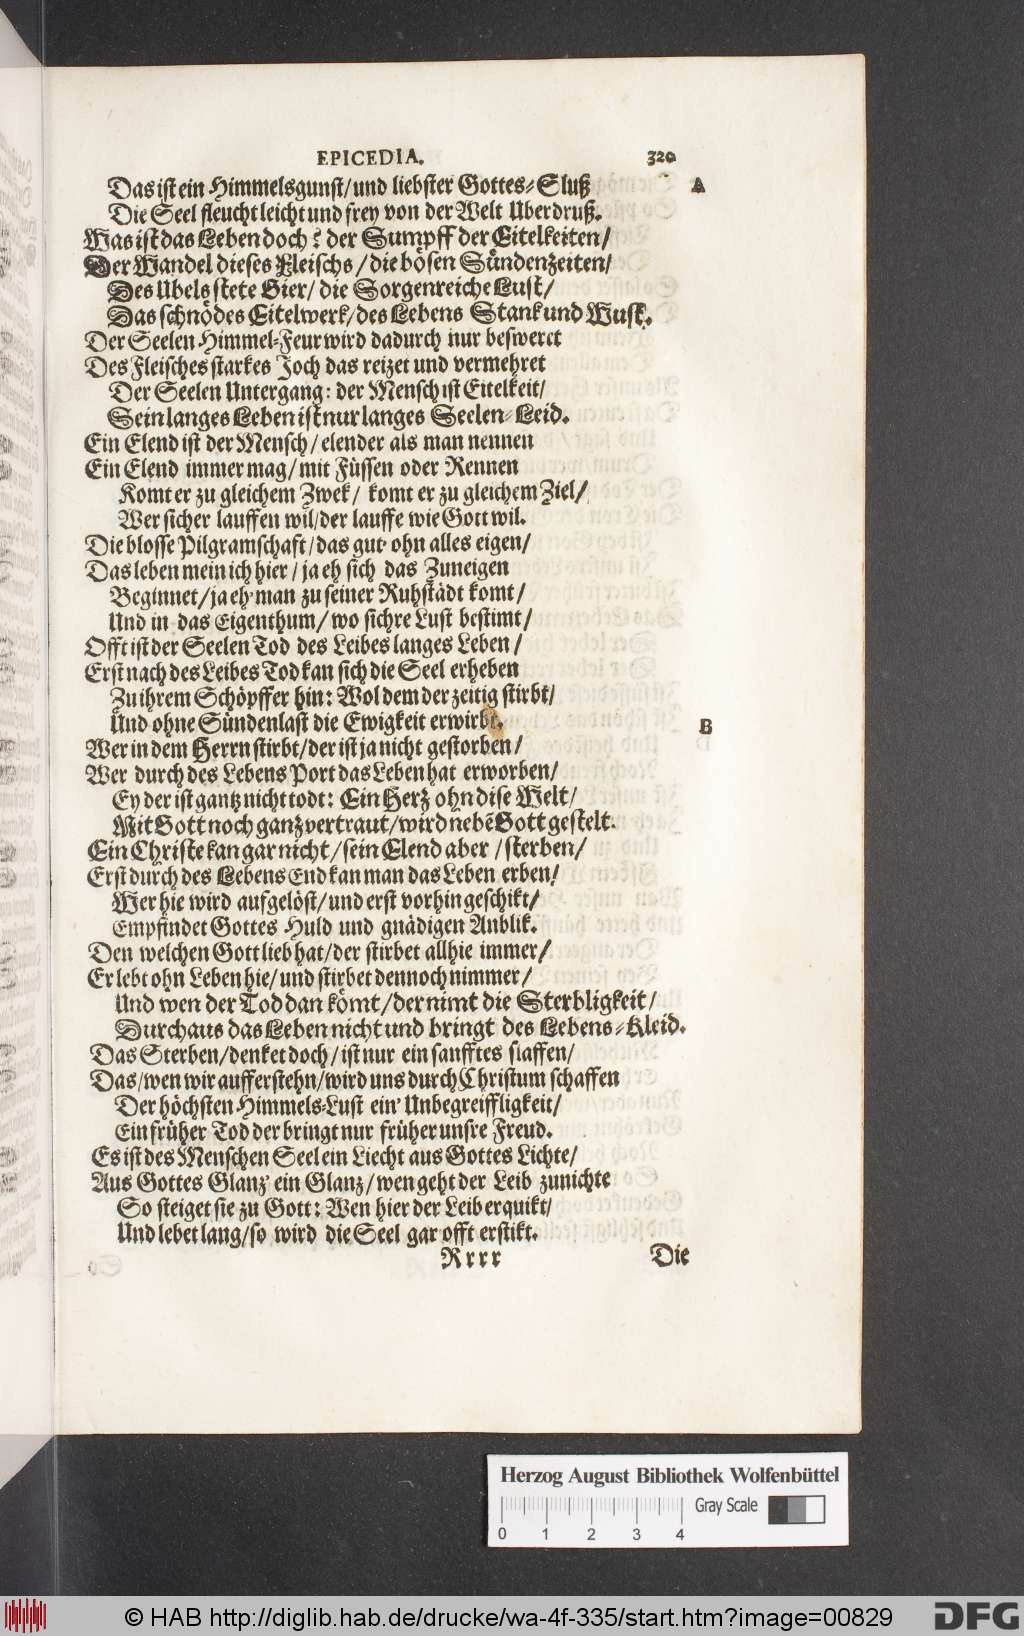 EPICEDIA. 320
Das ist ein Himmelsgunst/und liebster Gottes-Sluß A
Die Seel fleucht leicht und frey von der Welt Uberdruß.
Was ist das Leben doch? der Sumpff der Eitelkeiten/
Der Wandel dieses Fleischs/die bösen Sündenzeiten/
Des Ubels stete Gier/ die Sorgenreiche Lust/
Das schnödes Eitelwerk/des Lebens Stank und Wust.
Der Seelen Himmel-Feur wird dadurch nur besweret
Des Fleisches starkes Joch das reizet und vermehret
Der Seelen Untergang: der Mensch ist Eitelkeit/
Sein langes Leben ist nur langes Seelen-Leid.
Ein Elend ist der Mensch/elender als man nennen
Ein Elend immer mag/mit Füssen oder Rennen
Komt er zu gleichem Zwek/ komt er zu gleichem Ziel/
Wer sicher lauffen wil/der lauffe wie Gott wil.
Die blosse Pilgramschaft/das gut· ohn alles eigen/
Das leben mein ich hier/ja eh sich das Zuneigen
Beginnet/ja eh·man zu seiner Ruhstädt komt/
Und in das Eigenthum/wo sichre Lust bestimt/
Offt ist der Seelen Tod des Leibes langes Leben/
Erst nach des Leibes Tod kan sich die Seel erheben
Zu ihrem Schöpffer hin: Wol dem der zeitig stirbt/
Und ohne Sündenlast die Ewigkeit erwirbt. B
Wer in dem Herrn stirbt/der ist ja nicht gestorben/
Wer durch des Lebens Port das Leben hat erworben/
Ey der ist gantz nicht todt: Ein Herz ohn dise Welt/
Mit Gott noch ganz vertraut/wird nebē Gott gestelt.
Ein Christe kan gar nicht/sein Elend aber/sterben/
Erst durch des Lebens End kan man das Leben erben/
Wer hie wird aufgelöst/und erst vorhin geschikt/
Empfindet Gottes Huld und gnädigen Anblik.
Den welchen Gott lieb hat/der stirbet allhie immer/
Er lebt ohn Leben hie/und stirbet dennoch nimmer/
Und wen der Tod dan kömt/der nimt die Sterbligkeit/
Durchaus das Leben nicht und bringt des Lebens-Kleid.
Das Sterben/denket doch/ist nur ein sanfftes slaffen/
Das/wen wir aufferstehn/wird uns durch Christum schaffen
Der höchsten Himmels-Lust ein' Unbegreiffligkeit/
Ein früher Tod der bringt nur früher unsre Freud.
Es ist des Menschen Seel ein Liecht aus Gottes Lichte/
Aus Gottes Glanz ein Glanz/wen geht der Leib zunichte
So steiget sie zu Gott: Wen hier der Leib erquikt/
Und lebet lang/so wird die Seel gar offt erstikt.
Rrrr Die
Herzog August Bibliothek Wolfenbüttel
Gray Scale
0 1 2 3 4
© HAB http://diglib.hab.de/drucke/wa-4f-335/start.htm?image=00829
DFG